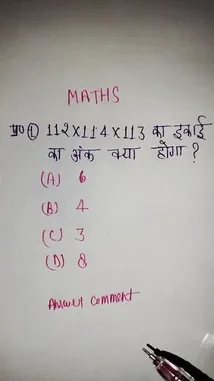 MATHS
प्र० ① 112×114×113 का इकाई
का अंक क्या होगा ?
(A) 6
(B) 4
(C) 3
(D) 8
Answer comment